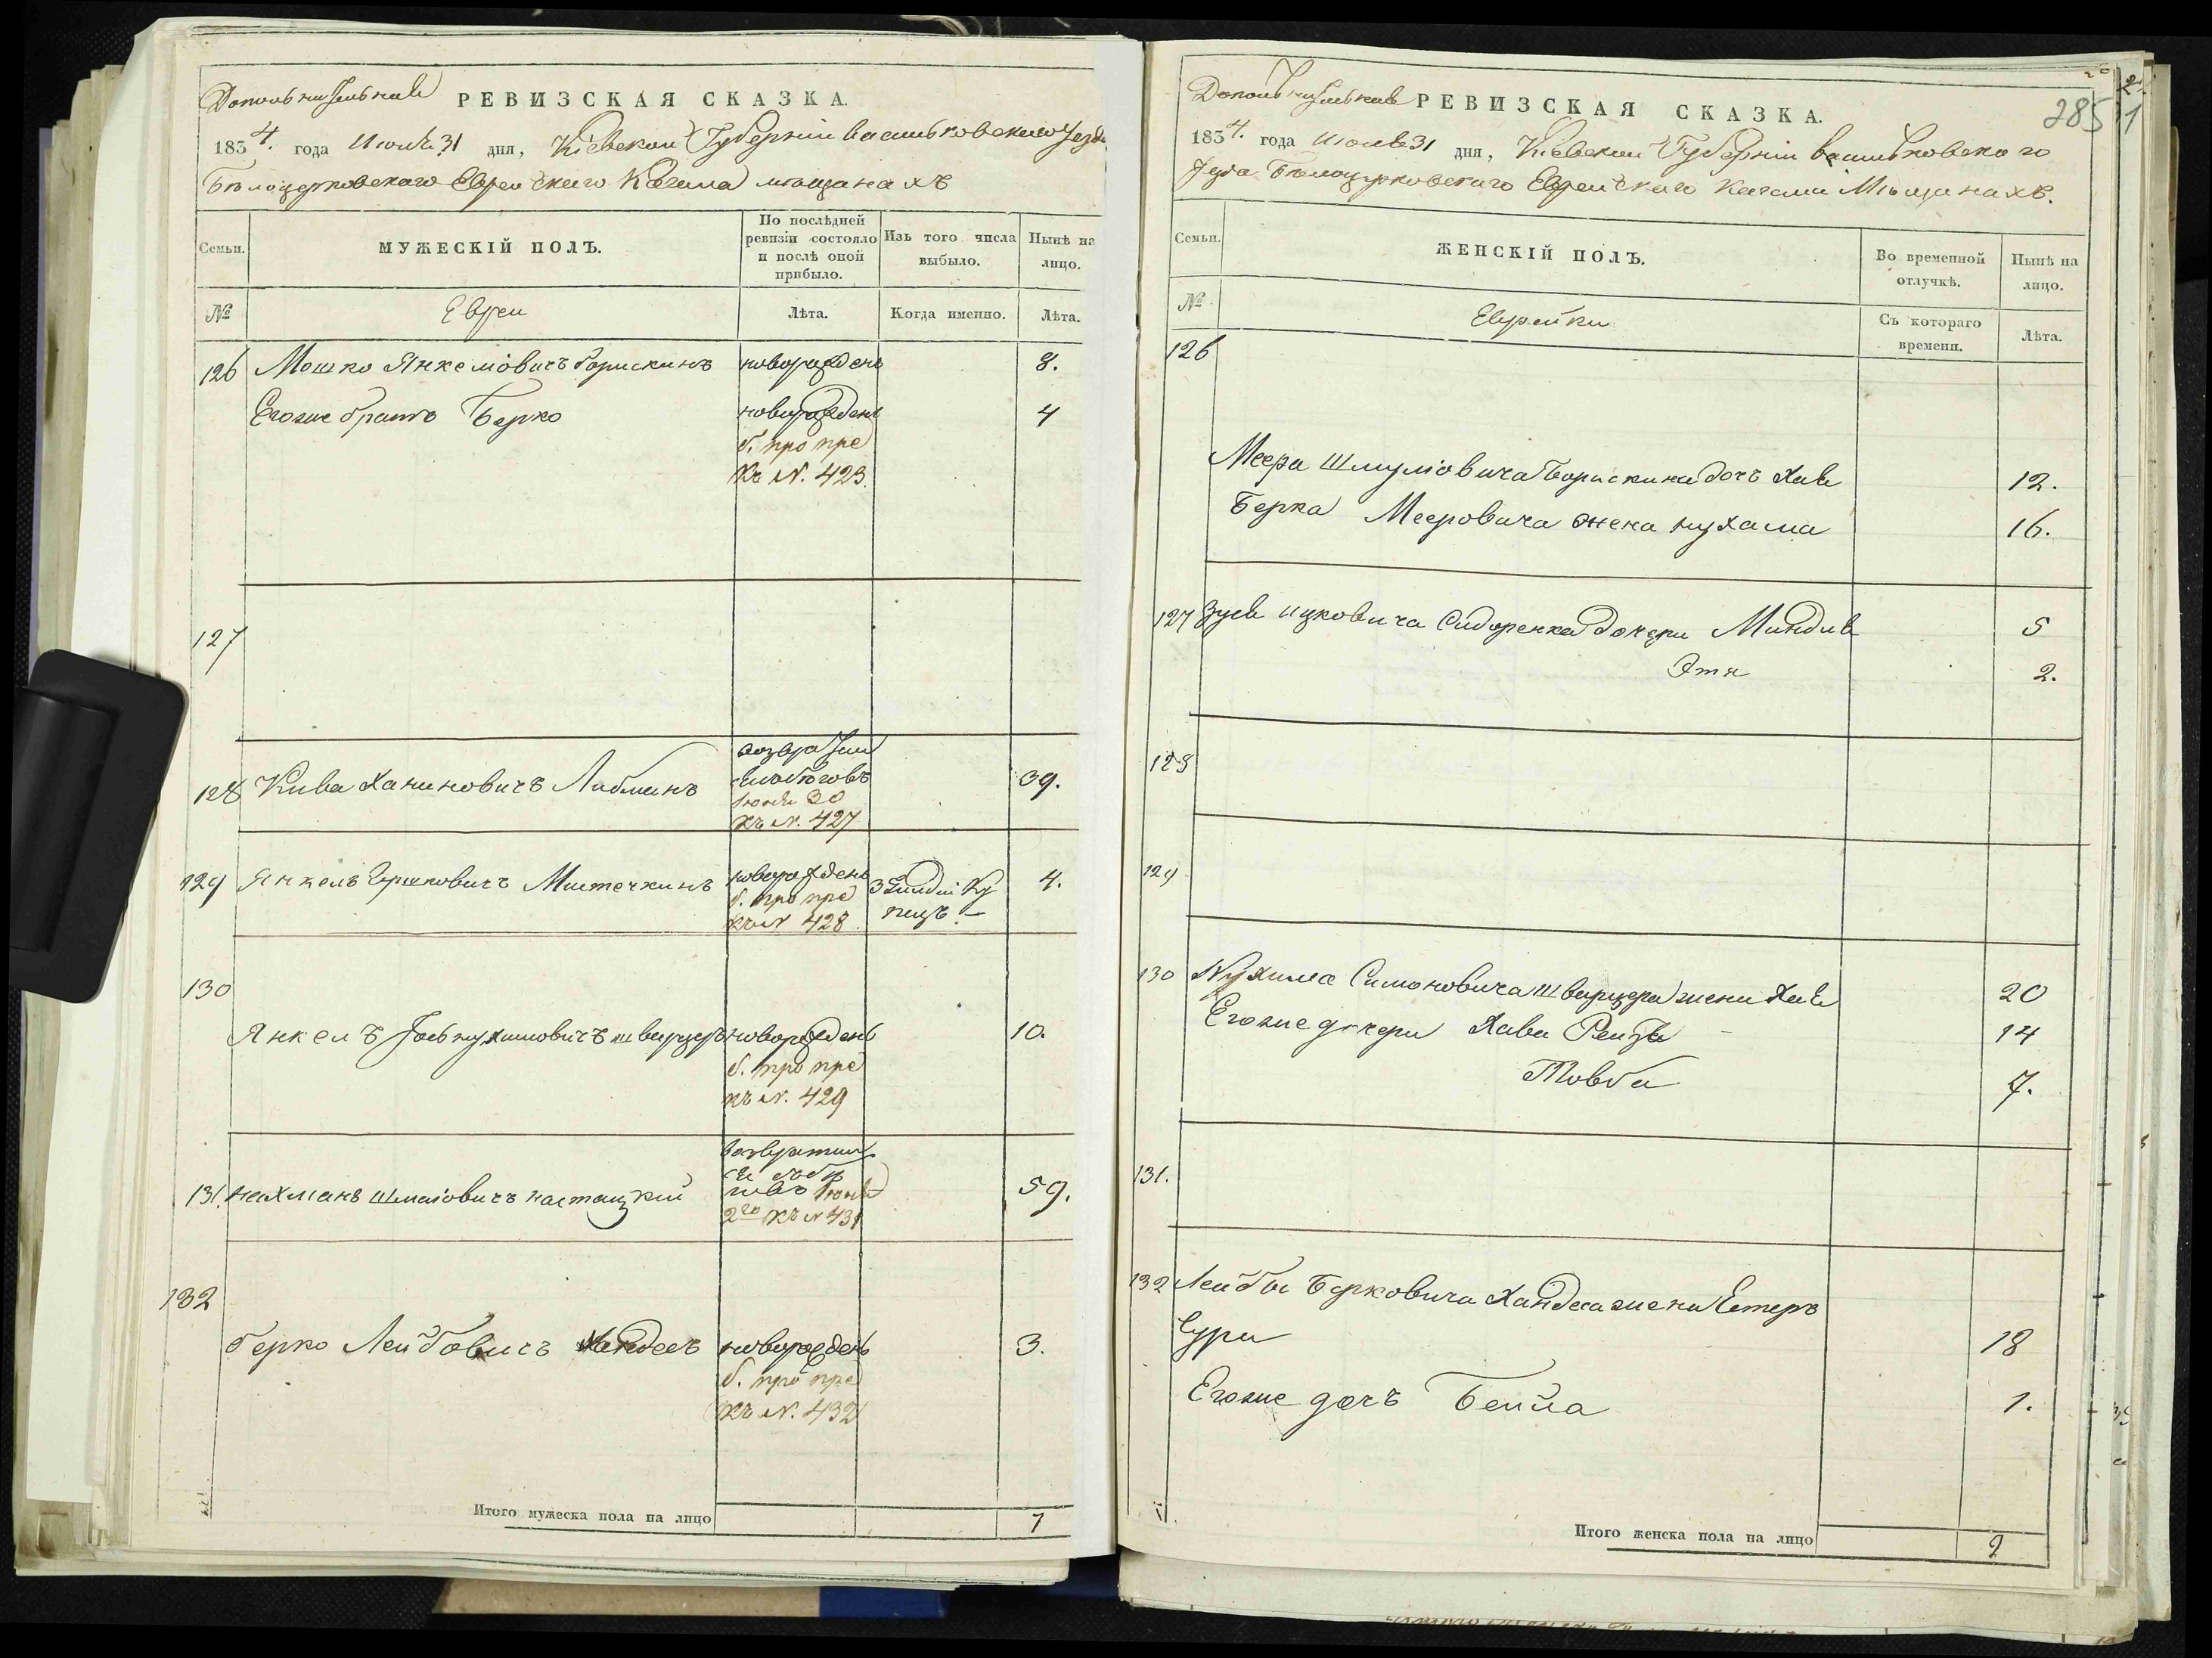 Дополнительная РЕВИЗСКАЯ СКАЗКА.
1834. года Июля 31 дня, Кіевской Губерніи Васильковского Уезда
Белоцерковскаго Еврейскаго Кагала мещанахъ
Семьи. МУЖЕСКІЙ ПОЛЪ. По послѣдней ревизіи состояло и послѣ оной прибыло. Изъ того числа выбыло. Нынѣ на лицо.
№ Евреи Лѣта. Когда именно. Лѣта.
126 Мошко Янкеліовичъ Борискинъ новорожденъ 8.
Егоже братъ Берко новорожденъ 4
б. про пре
къ N. 423.
127
128 Кива Ханиновичъ Либманъ возвратил
ся изъ беговъ 39.
Июня 30
къ N. 427
129 Янкель Гершковичъ Митечкинъ новорожденъ 3 Гилдіи Ку 4.
б. про пре пецъ.
къ N 428.
130
Янкелъ Іось Нухимовичъ Шварцеръ новорожденъ 10.
б. про пре
къ N. 429
131. Нахманъ Шмаіовичъ Настацкій возвратил 59.
ся зъ бѣ
говъ Июня
2го къ N 431
132
Берко Лейбовичъ Хандесъ новорожденъ 3.
б. про пре
къ N. 432
Итого мужеска пола на лицо 7
Дополнительная РЕВИЗСКАЯ СКАЗКА.
285
1834. года Июля 31 дня, Кіевской Губерніи Васильковского
Уезда Белоцерковскаго Еврейскаго Кагала Мещанахъ.
Семьи. ЖЕНСКІЙ ПОЛЪ. Во временной отлучкѣ. Нынѣ на лицо.
№ Еврейки Съ котораго времени. Лѣта.
126
Меера Шмуліовича Борискина дочъ Хая 12.
Берка Мееровича жена Нухама 16.
127 Зуся Ицковича Сидоренка дочери Миндля 5
Этя 2.
128
129
130 Нухима Симоновича Шварцера жена Хая 20
Егоже дочери Хава Рейзя 14
Товба 7.
131.
132 Лейбы Берковича Хандеса жена Естеръ
Сура 18
Егоже дочъ Бейла 1.
Итого женска пола на лицо 9